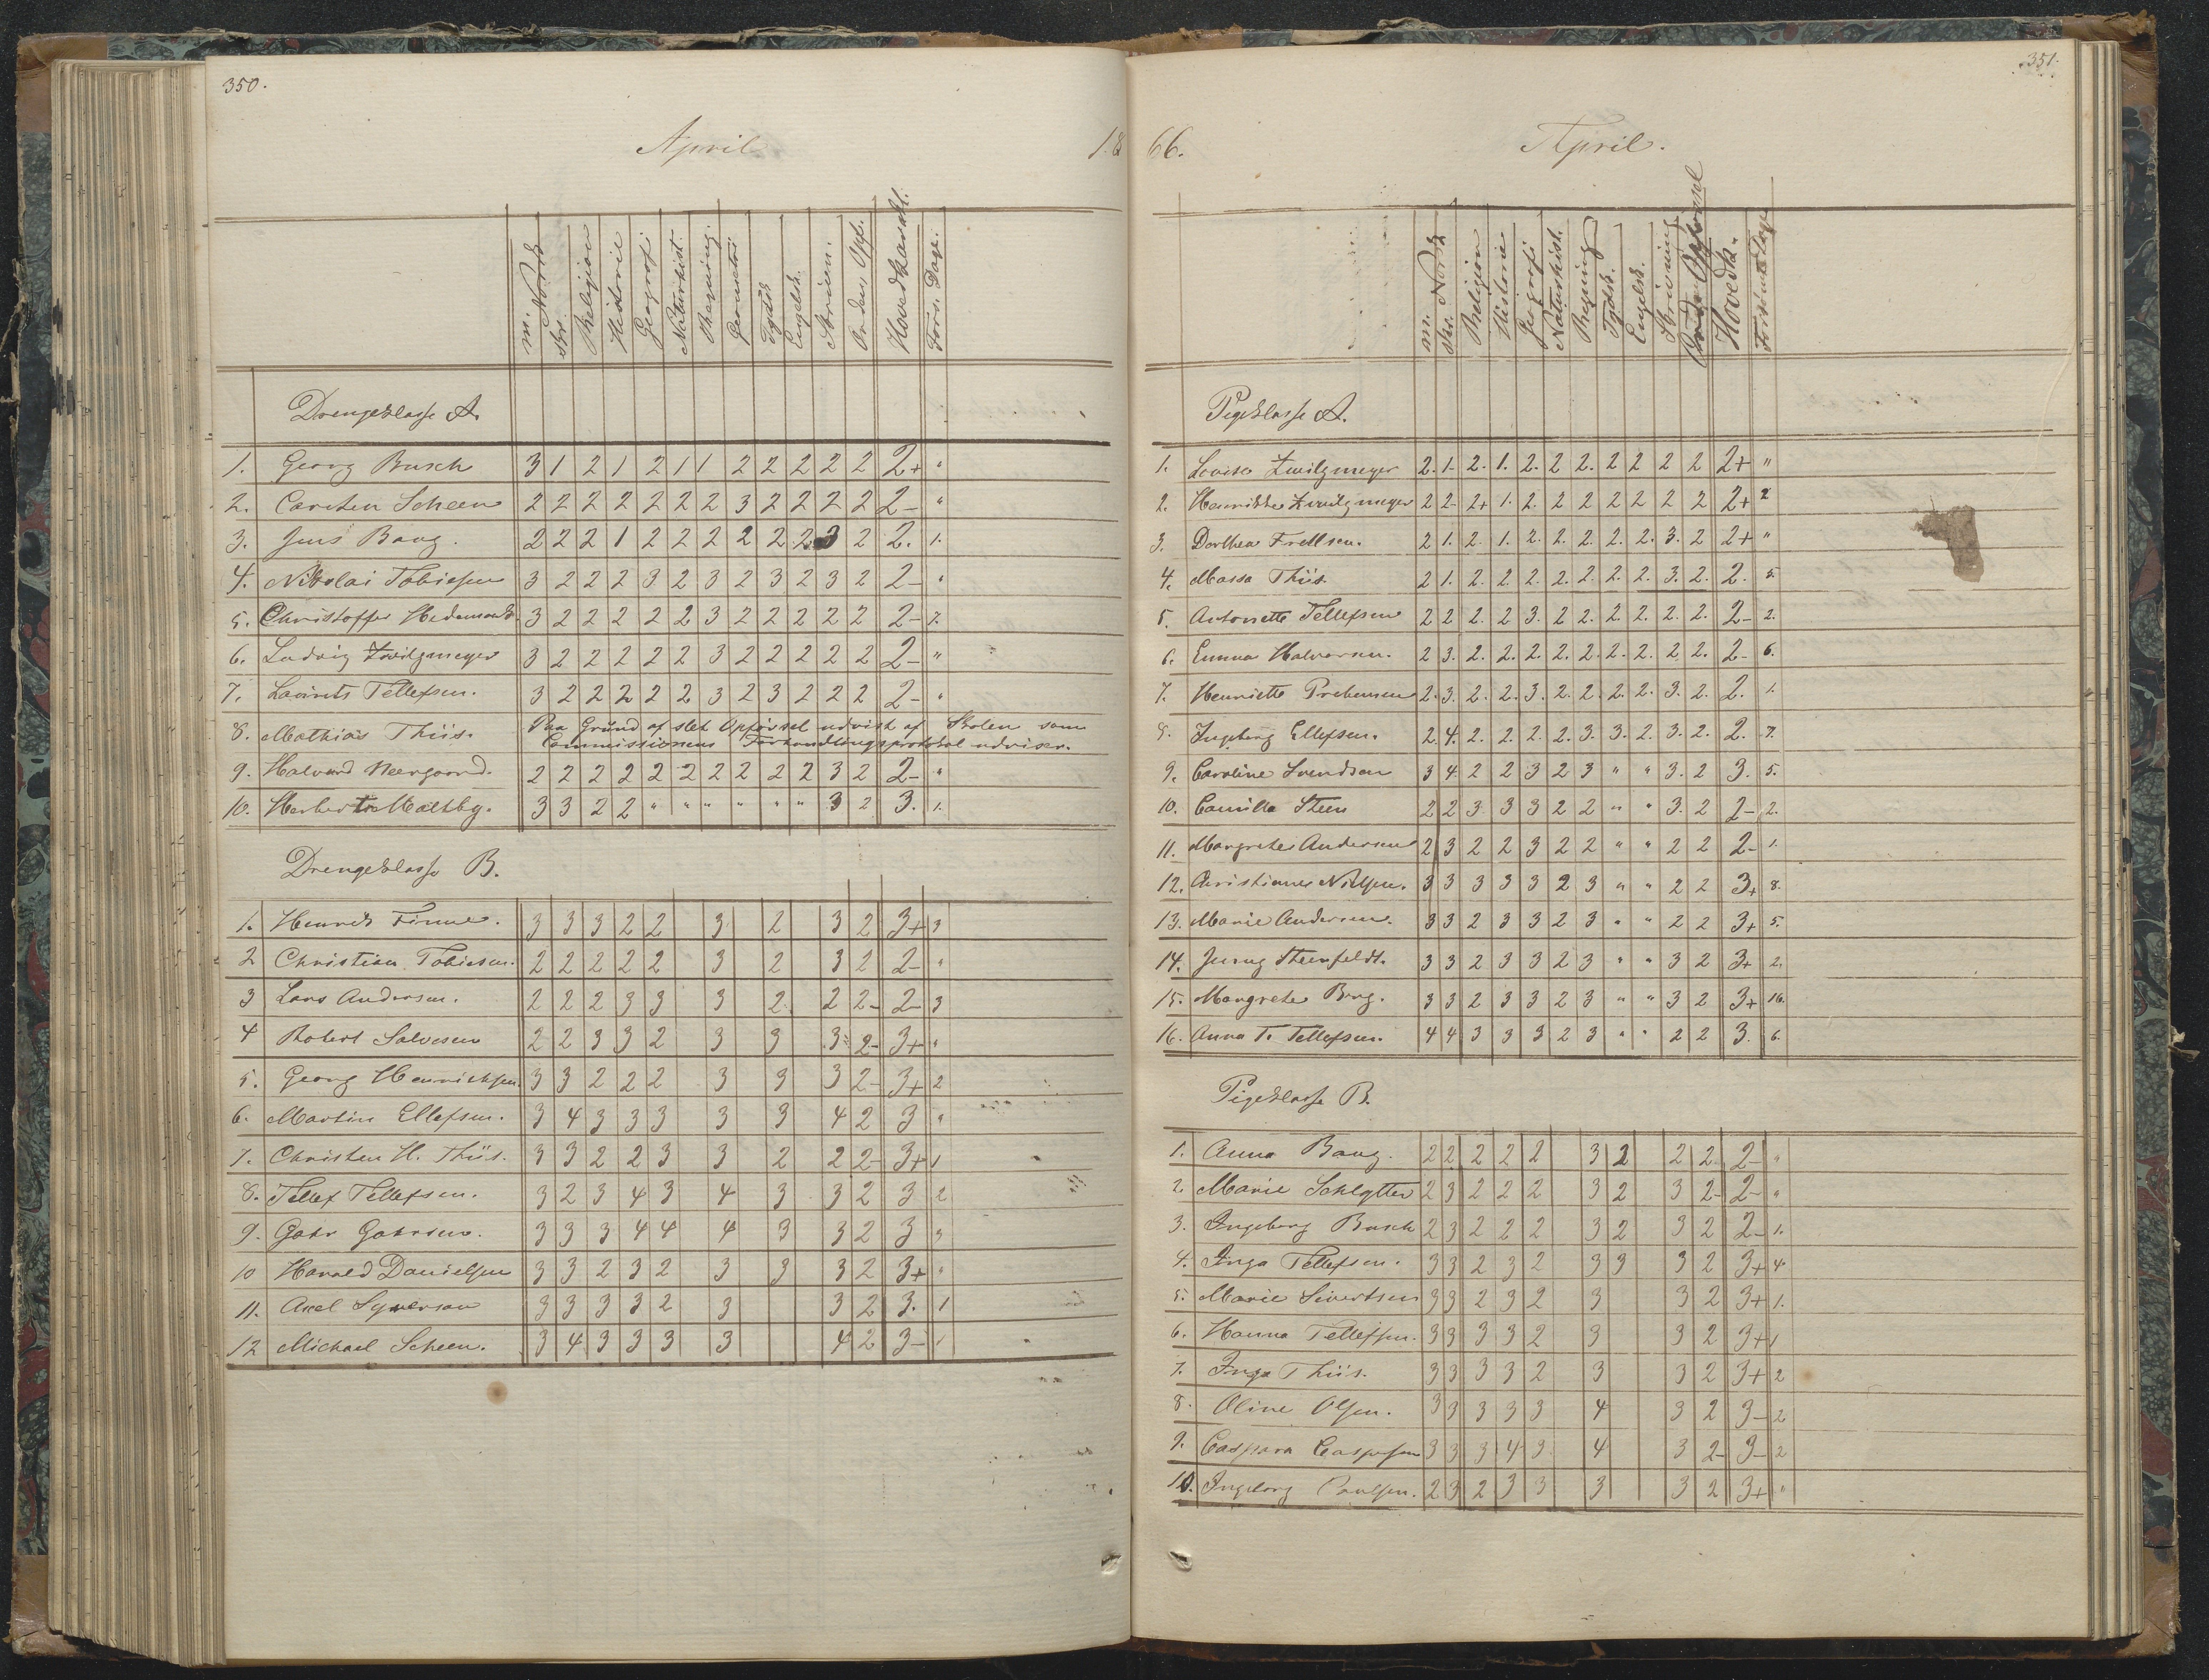 350.
April
18
m. Norsk
Skr.
Religion
Historie
Geografi
Naturhist.
Regning.
Geometri
Tydsk
Engelsk.
Skrivn.
Orden, Opf.
Hovedkarakt.
Fors. Dage.
Drengeklasse A.
1. Georg Busch 3 1 2 1 2 1 1 2 2 2 2 2 2+ "
2. Carsten Scheen 2 2 2 2 2 2 2 3 2 2 2 2 2- "
3. Jens Bang. 2 2 2 1 2 2 2 2 2 2 3 2 2. 1.
4. Nikolai Tobiesen 3 2 2 2 3 2 3 2 3 2 3 2 2- "
5. Christoffer Hedemark. 3 2 2 2 2 2 3 2 2 2 2 2 2- 7.
6. Ludvig Zwilgmeyer 3 2 2 2 2 2 3 2 2 2 2 2 2- "
7. Laurits Tellefsen. 3 2 2 2 2 2 3 2 3 2 2 2 2- "
8. Mathias Thiis. Paa Grund af slet Opførsel udvist af Skolen som
Commissionens Forhandlingsprotokol udviser.
9. Halvard Neergaard. 2 2 2 2 2 2 2 2 2 2 3 2 2- "
10. Herbert Maltby. 3 3 2 2 " " " " " " 3 2 3. 1.
Drengeklasse B.
1. Henrik Finne. 3 3 3 2 2 3 2 3 2 3+ 3
2 Christian Tobiesen. 2 2 2 2 2 3 2 3 2 2- "
3 Lars Andersen. 2 2 2 3 3 3 2. 2 2- 2- 3
4 Robert Salvesen 2 2 3 3 2 3 3 3 2- 3+ "
5. Georg Henrichsen. 3 3 2 2 2 3 3 3 2- 3+ 2
6. Martin Ellefsen. 3 4 3 3 3 3 3 4 2 3 "
7. Christen H. Thiis. 3 3 2 2 3 3 2 2 2- 3+ 1
8. Tellef Tellefsen. 3 2 3 4 3 4 3 3 2 3 2
9. Gahr Gahrsen. 3 3 3 4 4 4 3 3 2 3 "
10 Harald Danielsen 3 3 2 3 2 3 3 3 2 3+ "
11. Axel Syversen 3 3 3 3 2 3 3 2 3. 1
12 Michael Scheen. 3 4 3 3 3 3 4 2 3- 1
351.
66.
April.
m. Norsk
Skr.
Religion
Historie
Geografi
Naturhist.
Regning
Tydsk.
Engelsk.
Skrivning
Orden Opførsel
Hovedk.
Forsømte Dage
Pigeklasse A.
1. Lovise Zwilgmeyer 2. 1. 2. 1. 2. 2 2. 2 2 2 2 2+ "
2. Henrikke Zwilgmeyer 2 2- 2+ 1. 2. 2 2 2 2 2 2 2+ 2
3. Dorthea Frellsen. 2 1. 2. 1. 2. 2. 2. 2. 2. 3. 2 2+ "
4. Massa Thiis. 2 1. 2. 2. 2. 2. 2. 2. 2. 3. 2. 2. 5.
5. Antonette Tellefsen 2 2 2. 2 3. 2 2. 2. 2. 2. 2. 2- 2.
6. Emma Halvorsen. 2 3. 2. 2. 2. 2. 2. 2. 2. 2. 2. 2- 6.
7. Henriette Prebensen 2. 3. 2. 2. 3. 2. 2. 2. 2. 3. 2. 2. 1.
8. Ingeborg Ellefsen. 2. 4. 2. 2. 2. 2. 3. 3. 2. 3. 2. 2. 7.
9. Caroline Svendsen 3 4. 2 2 3 2 3 " " 3. 2 3. 5.
10. Camilla Steen 2 2 3. 3 3 2 2 " " 3. 2 2- 2.
11. Margrethe Andersen 2 3 2 2 3 2 2 " " 2 2 2- 1.
12. Christiane Nielsen. 3 3 3 3 3 2 3 " " 2 2 3+ 8.
13. Marie Andersen. 3 3 2 3 3 2 3 " " 2 2 3+ 5.
14. Jenny Steenfeldt. 3 3 2 3 3 2 3 " " 3 2 3+ 2.
15. Margrethe Borg. 3 3 2 3 3 2 3 " " 3 2 3+ 16.
16. Anna T. Tellefsen. 4 4 3 3 3 2 3 " " 2 2 3. 6.
Pigeklasse B.
1. Anna Bang. 2 2 2 2 2 3 2 2 2. 2- "
2 Marie Schlytter 2 3 2 2 2 3 2 3 2- 2- "
3. Ingeborg Busch 2 3 2 2 2 3 2 3 2 2- 1.
4. Inga Tellefsen. 3 3 2 3 2 3 3 3 2 3+ 4.
5. Marie Sivertsen 3 3 2 3 2 3 3 2 3+ 1.
6. Hanna Tellefsen. 3 3 3 3 2 3 3 2 3+ 1
7. Inga Thiis. 3 3 3 3 2 3 3 2 3+ 2
8. Oline Olsen. 3 3 3 3 3 4 3 2 3- 2
9. Caspara Caspersen 3 3 3 4 3. 4 3 2- 3- 2
10. Ingeborg Paulsen. 2 3 2 3 3 3 3 2 3+ "